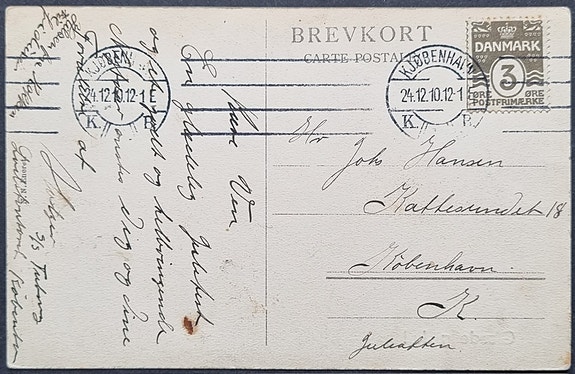 BREVKORT
CARTE POSTALE
DANMARK
3
ØRE ØRE
POSTFRIMÆRKE
KJØBENHAVN
24.12.10.12-1
K. B.
KJØBENH
24.12.10.12-1 E
K. B.
Hr
Johs Hansen
Kattesundet 18
København
K.
Juleaften.
Kære Ven.
En glædelig Julefest
og et godt og helbringende
Nytaar ønskes Dig og dine
Forældre af
Hilsen fra
til